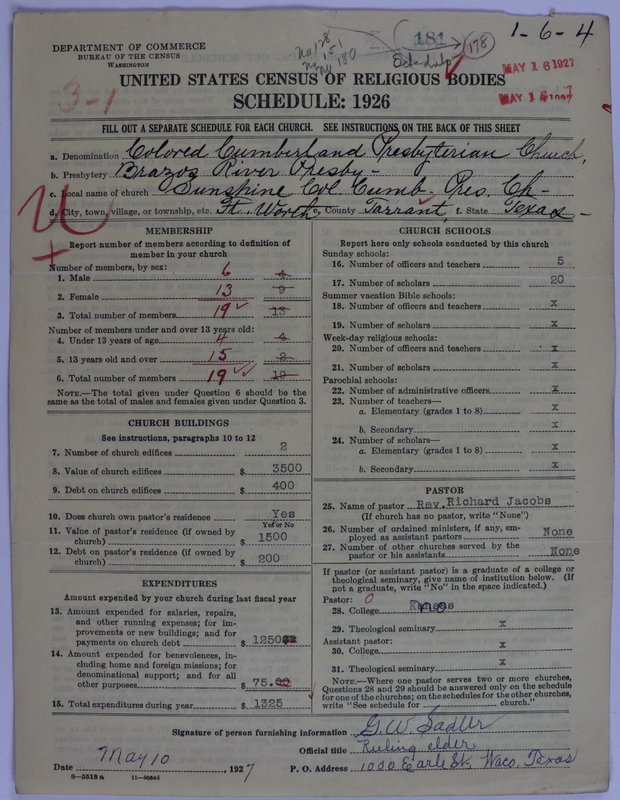 1-6-4
DEPARTMENT OF COMMERCE
BUREAU OF THE CENSUS
WASHINGTON
No 178
151
No 180
181
Schedule
178
MAY 16 1927
3-1
UNITED STATES CENSUS OF RELIGIOUS BODIES
SCHEDULE: 1926
FILL OUT A SEPARATE SCHEDULE FOR EACH CHURCH. SEE INSTRUCTIONS ON THE BACK OF THIS SHEET
a. Denomination Colored Cumberland Presbyterian Church,
b. Presbytery Brazos River Presby-
c. Local name of church Sunshine Col. Cumb. Pres. Ch-
d. City, town, village, or township, etc. Ft. Worth County Tarrant f. State Texas-
MEMBERSHIP
Report number of members according to definition of
member in your church
Number of members, by sex:
1. Male 6 4
2. Female 13 9
3. Total number of members 19 13
Number of members under and over 13 years old:
4. Under 13 years of age 4 4
5. 13 years old and over 15
6. Total number of members 19
NOTE.—The total given under Question 6 should be
same as the total of males and females given under Question 3.
CHURCH BUILDINGS
See instructions, paragraphs 10 to 12
7. Number of church edifices 2
8. Value of church edifices $ 3500
9. Debt on church edifices $ 400
10. Does church own pastor's residence Yes
Yes or No
11. Value of pastor's residence (if owned by
church) $ 1500
12. Debt on pastor's residence (if owned by
church) $ 200
EXPENDITURES
Amount expended by your church during last fiscal year
13. Amount expended for salaries, repairs,
and other running expenses; for im-
provements or new buildings; and for
payments on church debt $ 1250
14. Amount expended for benevolences, in-
cluding home and foreign missions; for
denominational support; and for all
other purposes $ 75.00
15. Total expenditures during year $ 1325
CHURCH SCHOOLS
Report here only schools conducted by this church
Sunday schools:
16. Number of officers and teachers 5
17. Number of scholars 20
Summer vacation Bible schools:
18. Number of officers and teachers x
19. Number of scholars x
Week-day religious schools:
20. Number of officers and teachers x
21. Number of scholars x
Parochial schools:
22. Number of administrative officers x
23. Number of teachers—
a. Elementary (grades 1 to 8) x
b. Secondary x
24. Number of scholars—
a. Elementary (grades 1 to 8) x
b. Secondary x
PASTOR
25. Name of pastor Rev. Richard Jacobs
(If church has no pastor, write "None")
26. Number of ordained ministers, if any, em-
ployed as assistant pastors None
27. Number of other churches served by the
pastor or his assistants None
If pastor (or assistant pastor) is a graduate of a college or
theological seminary, give name of institution below. (If
not a graduate, write "No" in the space indicated.)
Pastor: 0
28. College Kansas no
29. Theological seminary x
Assistant pastor:
30. College x
31. Theological seminary x
NOTE.—Where one pastor serves two or more churches,
Questions 28 and 29 should be answered only on the schedule
for one of the churches; on the schedules for the other churches,
write "See schedule for church."
Signature of person furnishing information G. W. Sadler
Official title Ruling elder
Date May 10, 1927 P. O. Address 1000 Earle St. Waco, Texas
8—5518 a 11—20845